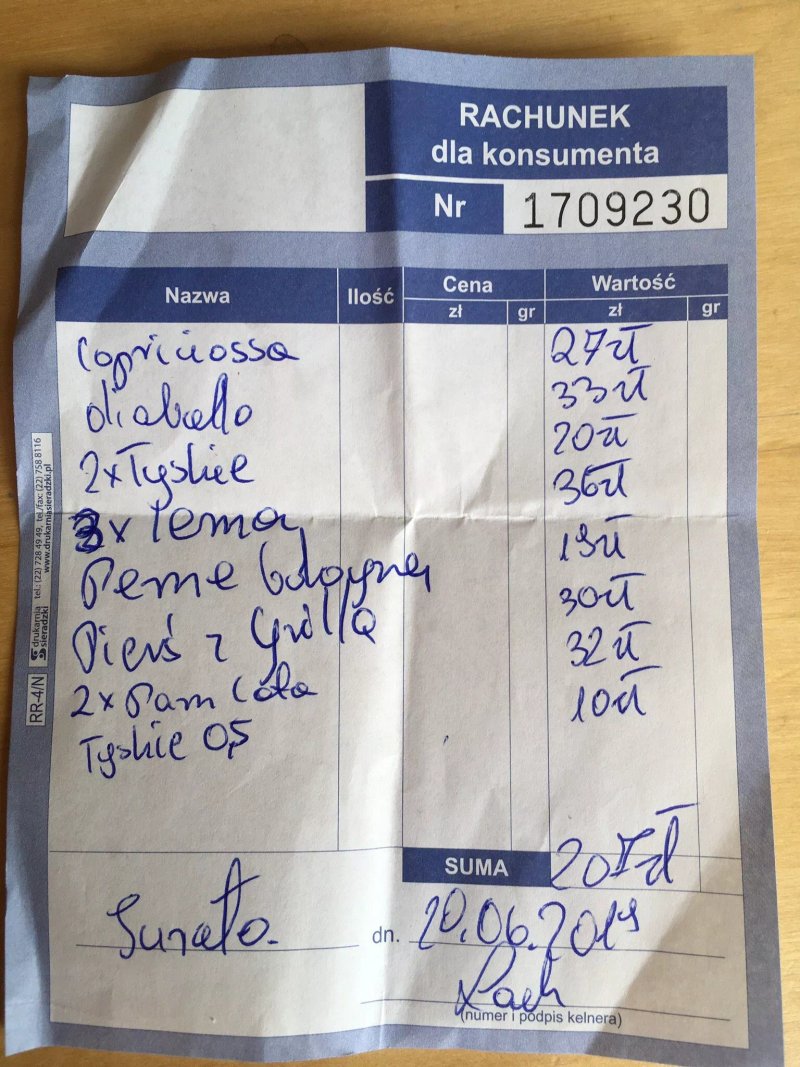 RACHUNEK
dla konsumenta
Nr 1709230
Nazwa Ilość Cena Wartość
zł gr zł gr
Capriciossa 27zł
33zł
2x Tyskie 20zł
3x 36zł
Penne 19zł
Pierś z Grilla 30zł
2x Cola 32zł
Tyskie 0,5 10zł
SUMA 207zł
dn. 20.06.2019
(numer i podpis kelnera)
RR-4/N
drukarnia
sieradzki
tel.: (22) 728 49 49, tel./fax: (22) 758 8116
www.drukarniasieradzki.pl